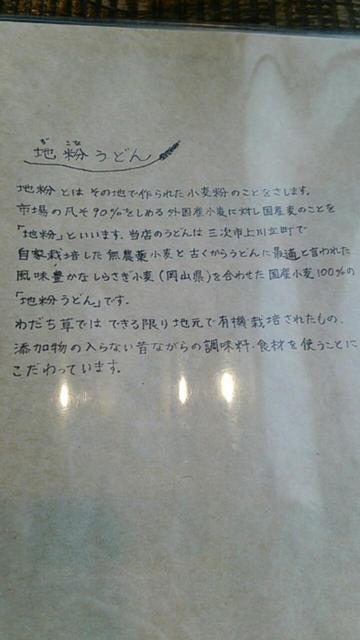 地粉うどん
地粉とはその地で作られた小麦粉のことをさします。
市場の凡そ90%をしめる外国産小麦に対し国産麦のことを
「地粉」といいます。当店のうどんは三次市上川立町で
自家栽培した無農薬小麦と古くからうどんに最適と言われた
風味豊かなしらさぎ小麦(岡山県)を合わせた国産小麦100%の
「地粉うどん」です。
わだち草ではできる限り地元で有機栽培されたもの、
添加物の入らない昔ながらの調味料・食材を使うことに
こだわっています。